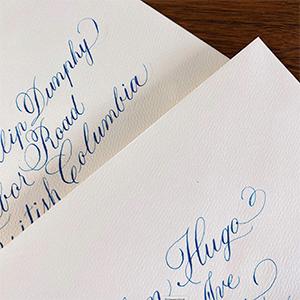 lip Dunphy
bor Road
British Columbia
n Hugo
Ave